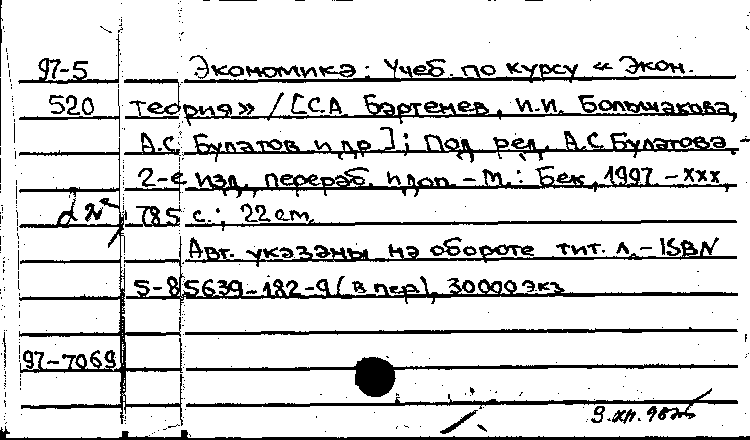 97-5 Экономика: Учеб. по курсу « Экон.
520 теория» / [С.А. Бартенев, И.И. Большакова,
А.С. Булатов и др.]; Под ред. А.С. Булатова. -
2-е изд., перераб. и доп. - М.: Бек, 1997. - XXX,
785 с.; 22 см.
Авт. указаны на обороте тит. л. - ISBN
5-85639-182-9 (в пер), 30000 экз
97-7069